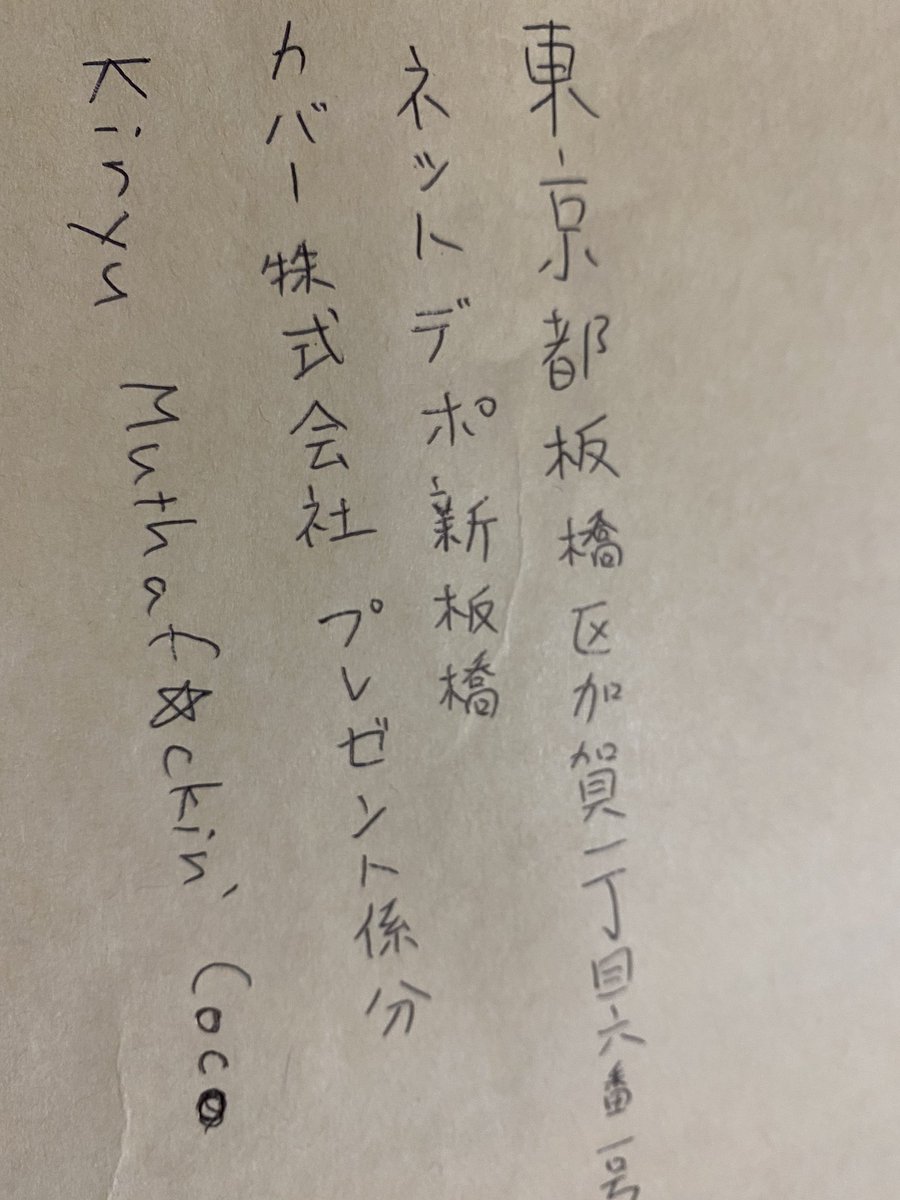 東京都板橋区加賀一丁目六番一号
ネットデポ新板橋
カバー株式会社 プレゼント係分
Kiryu Muthaf☆ckin' Coco